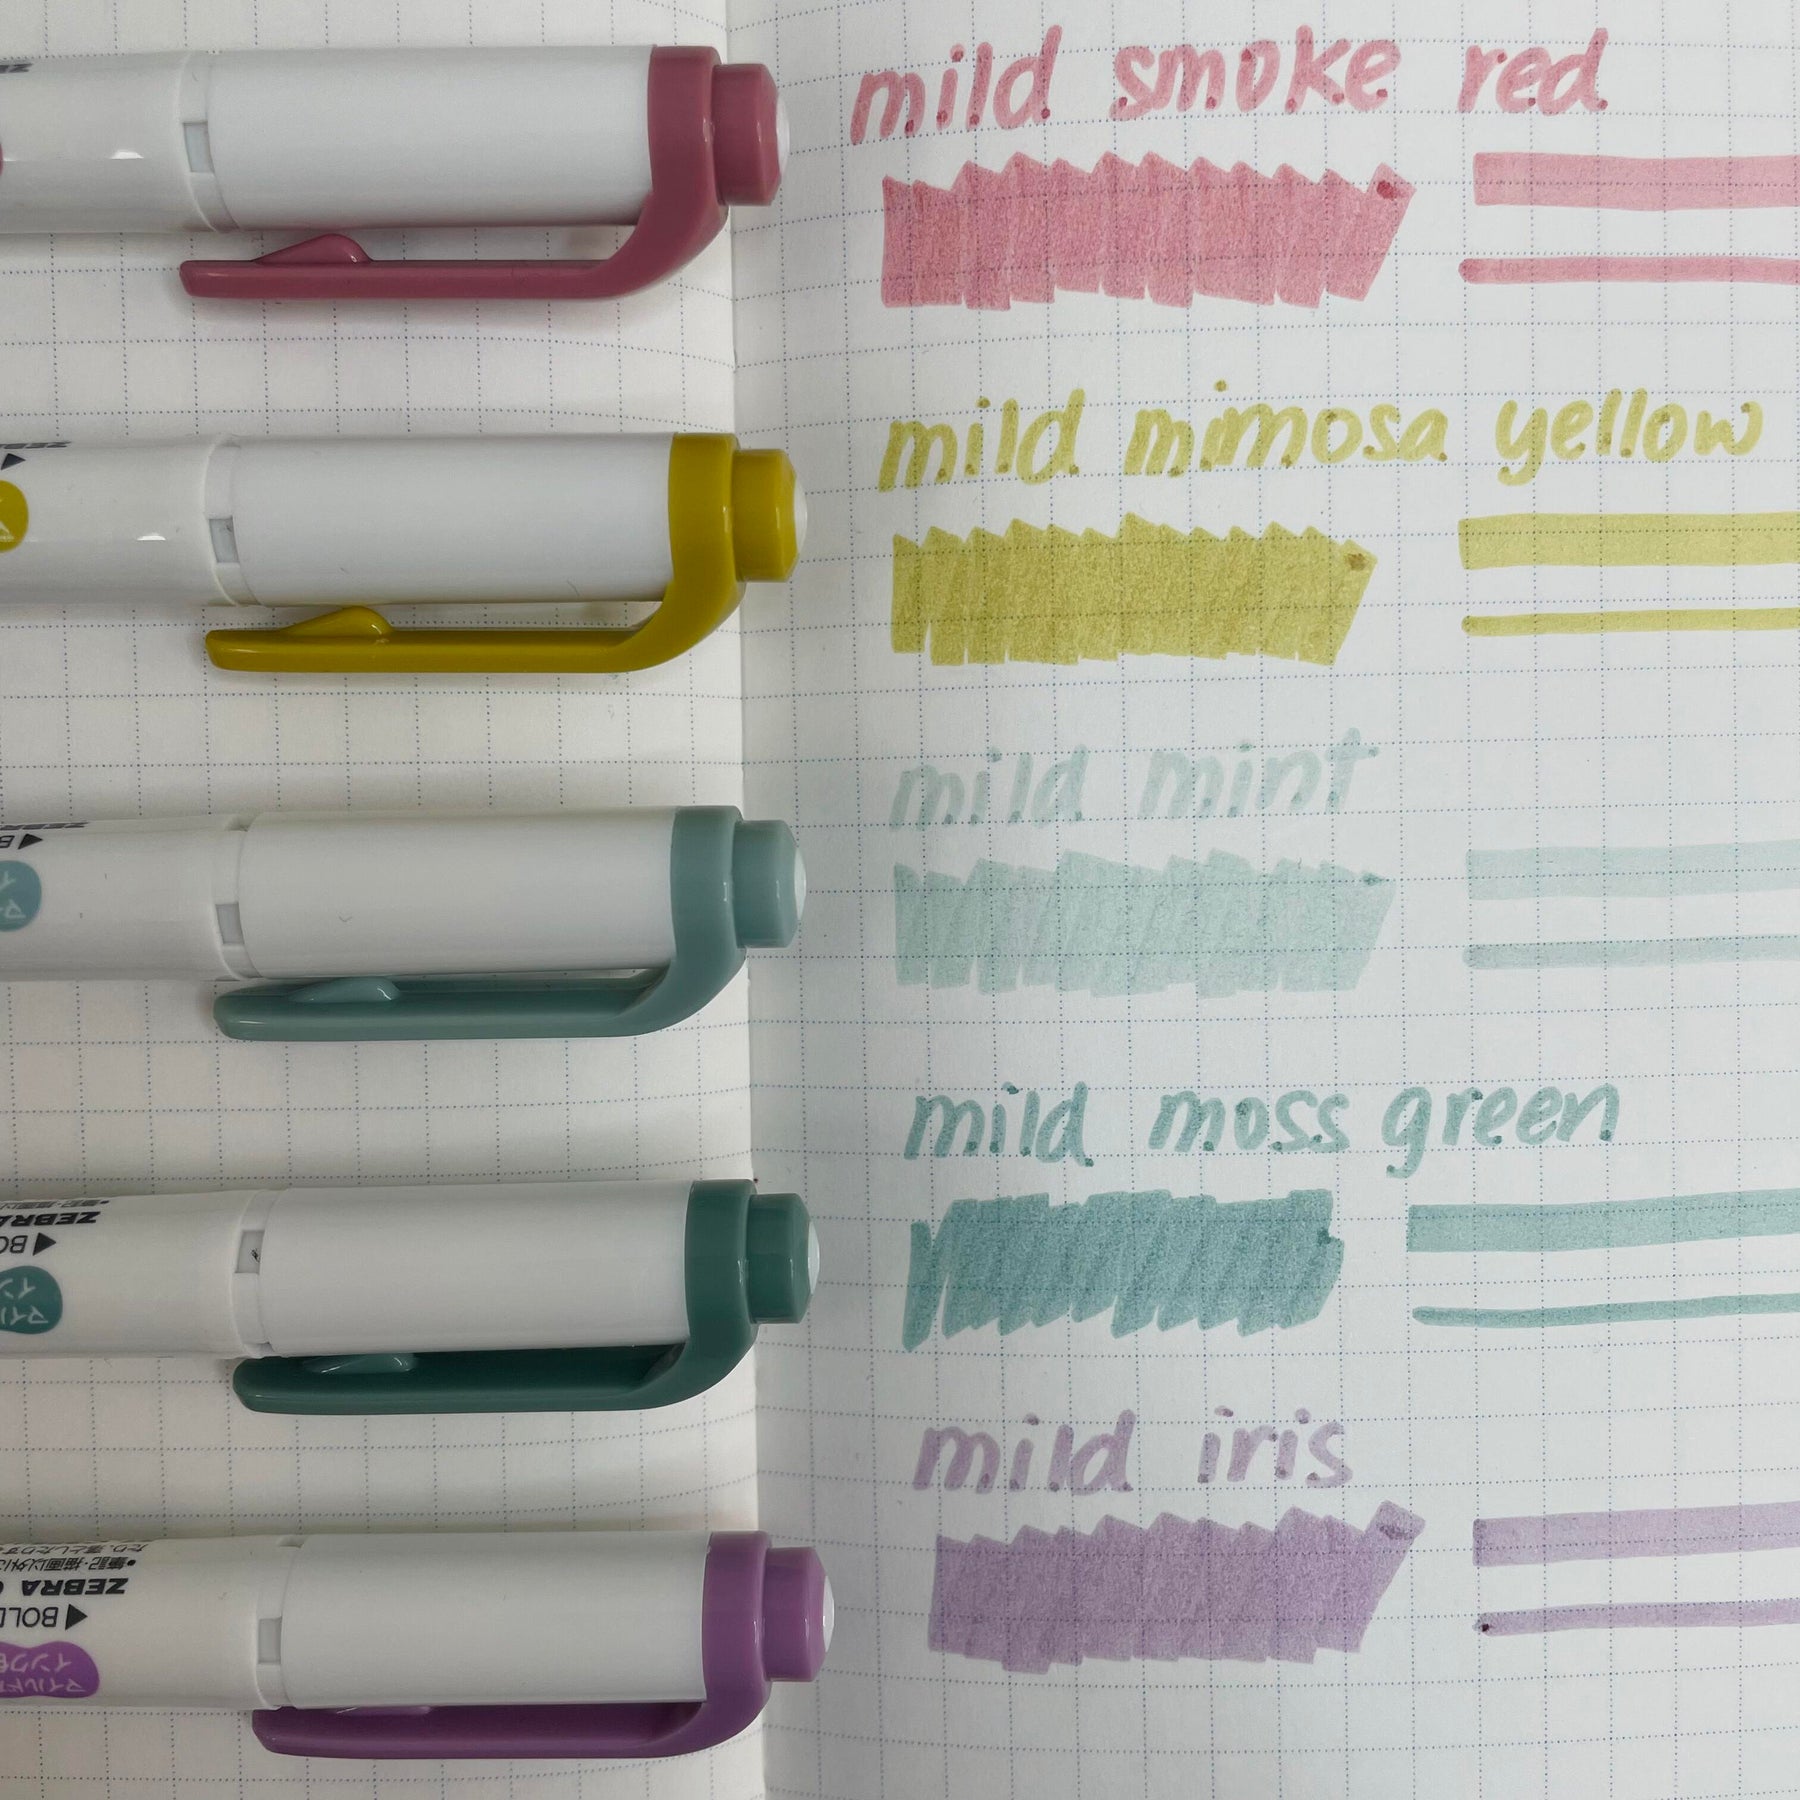 mild smoke red
mild mimosa yellow
mild mint
mild moss green
mild iris
ZEBRA
BOLD
マイルド
インク